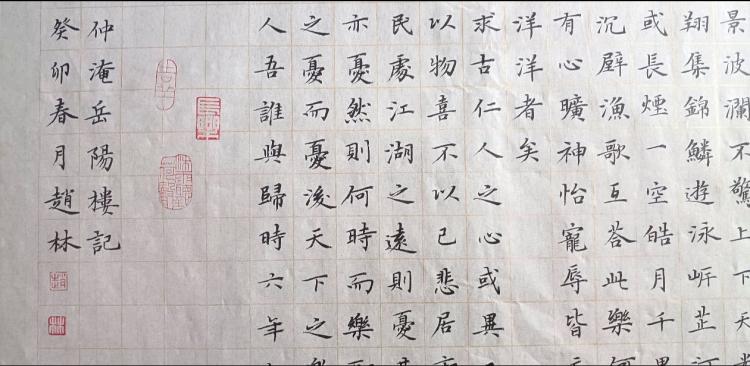 景波瀾不驚上下天
翔集錦鱗遊泳岸芷汀
或長煙一空皓月千
沉璧漁歌互荅此樂何
有心曠神怡寵辱皆
洋洋者矣
求古仁人之心或異
以物喜不以己悲居
民處江湖之遠則憂其
亦憂然則何時而樂
之憂而憂後天下之
人吾誰與歸時六年
仲淹岳陽樓記
癸卯春月趙林
趙
林